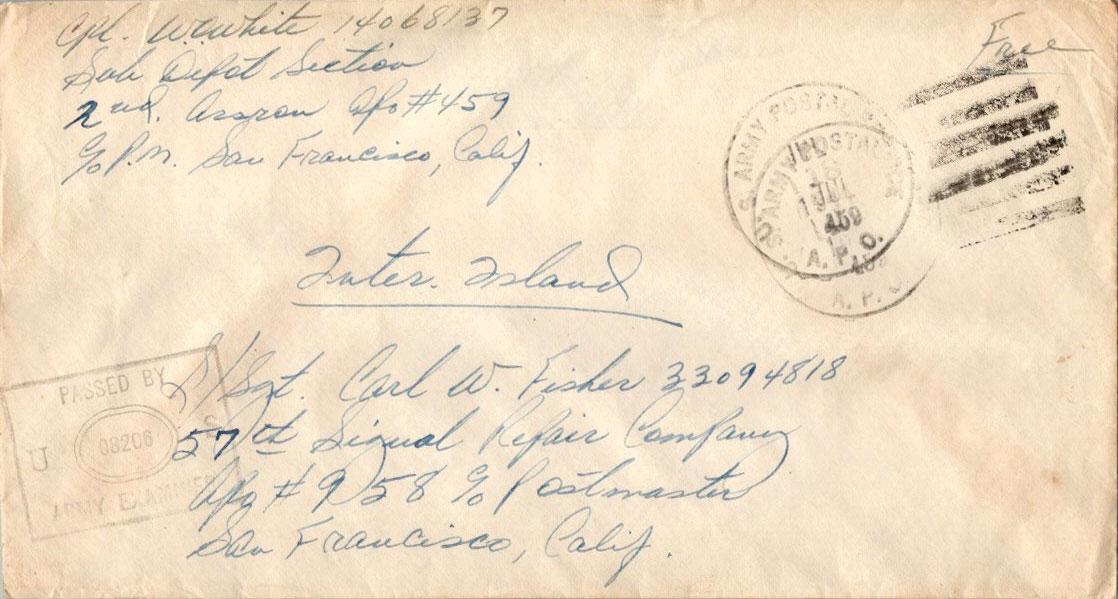 Cpl. W.C. White 14068137
Sub Depot Section
2nd. Assron Apo #459
c/o P.M. San Francisco, Calif.
Free
U.S. ARMY POSTAL
18
JUL
1
459
A. P. O.
A. P. O.
Inter. Island
S/Sgt. Carl W. Fisher 33094818
57th Signal Repair Company
Apo #958 c/o Postmaster
San Francisco, Calif.
PASSED BY
U 08206 S
ARMY EXAMINER